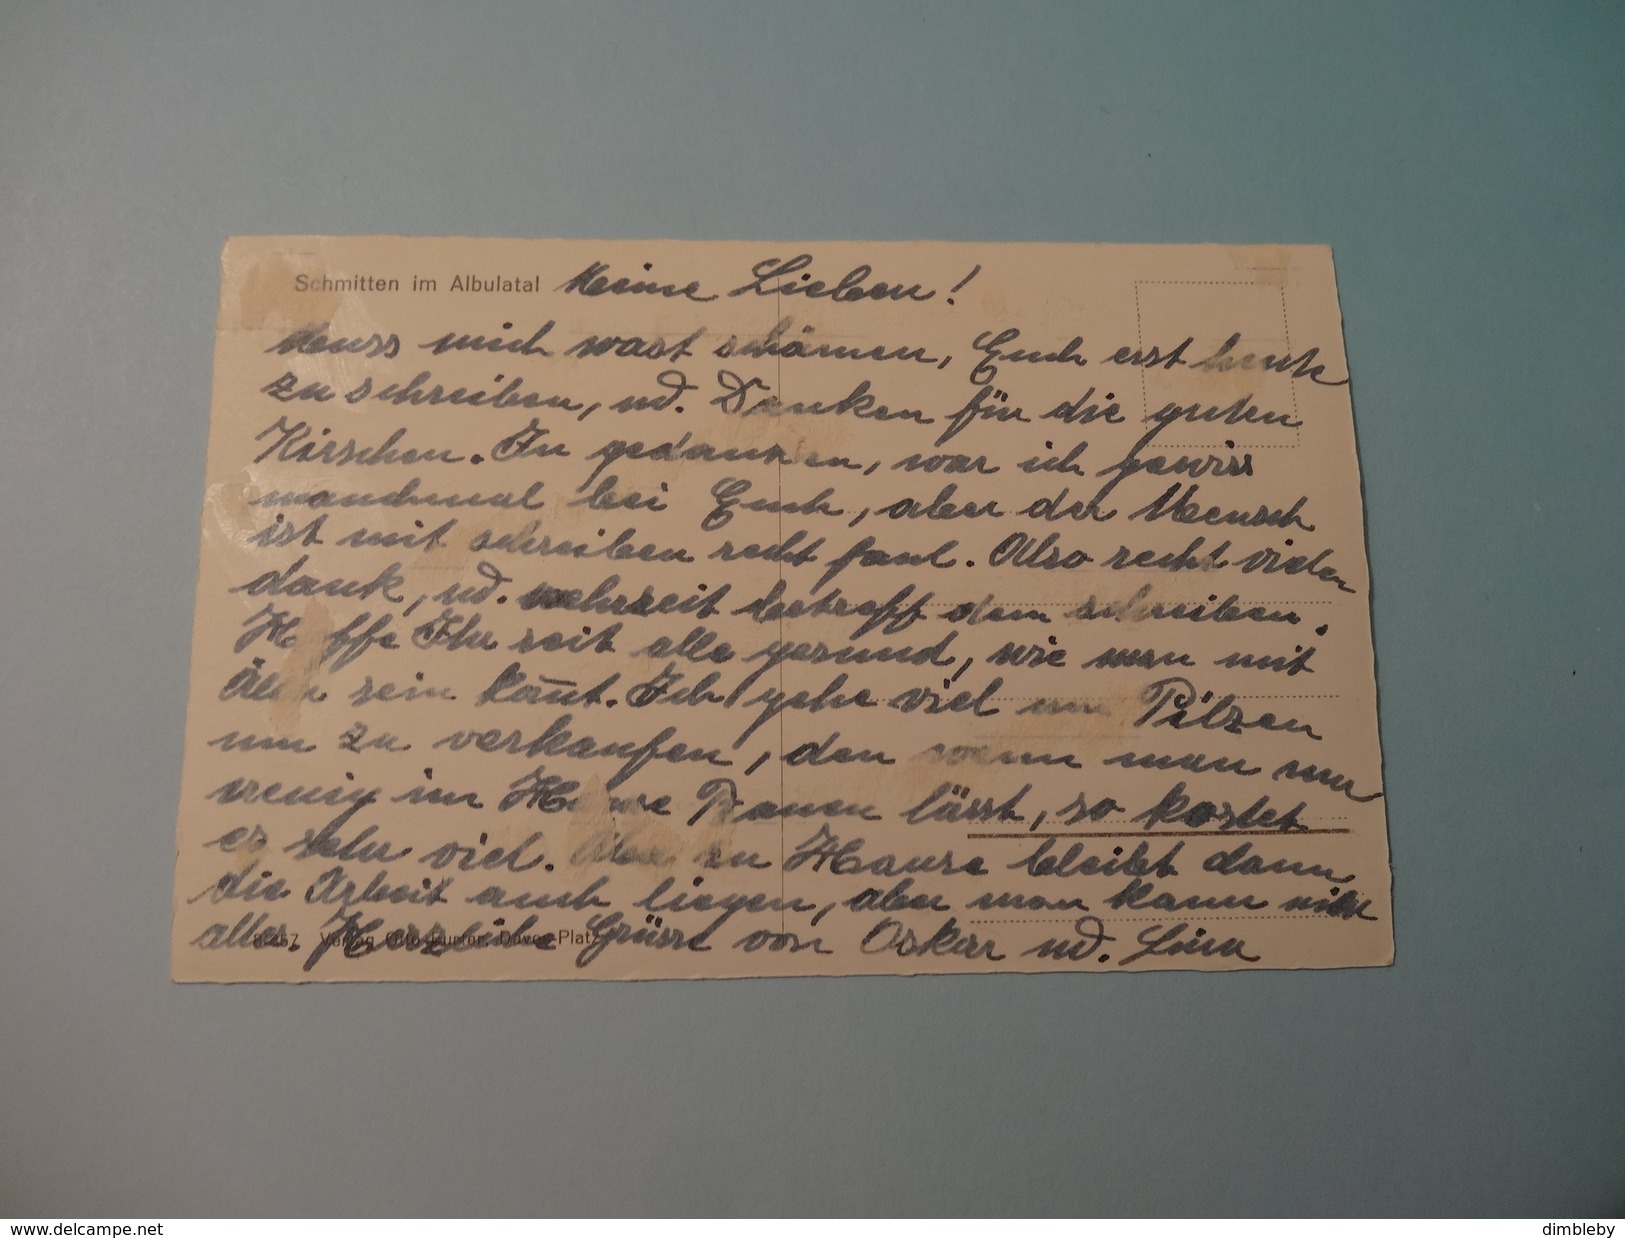 Schmitten im Albulatal Meine Lieben!
muss mich fast schämen, Euch erst heute
zu schreiben, ud. Danken für die guten
Kirschen. In gedanken, war ich gewiss
manchmal bei Euch, aber der Mensch
ist mit schreiben recht faul. Also recht vielen
dank, ud. betreff dem schreiben.
Hoffe Ihr seit alle gesund, wie man mit
sein kann̅t. Ich gehe viel um Pilzen
um zu verkaufen, den wenn man nur
wenig im Hause Bauen lässt, so kostet
es sehr viel. Aber zu Hause bleibt dann
die Arbeit auch liegen, aber man kann nicht
alles. Herzliche Grüsse von Oskar ud. Lina
Verlag Otto Furter, Davos-Platz
delcampe.net
dimbleby